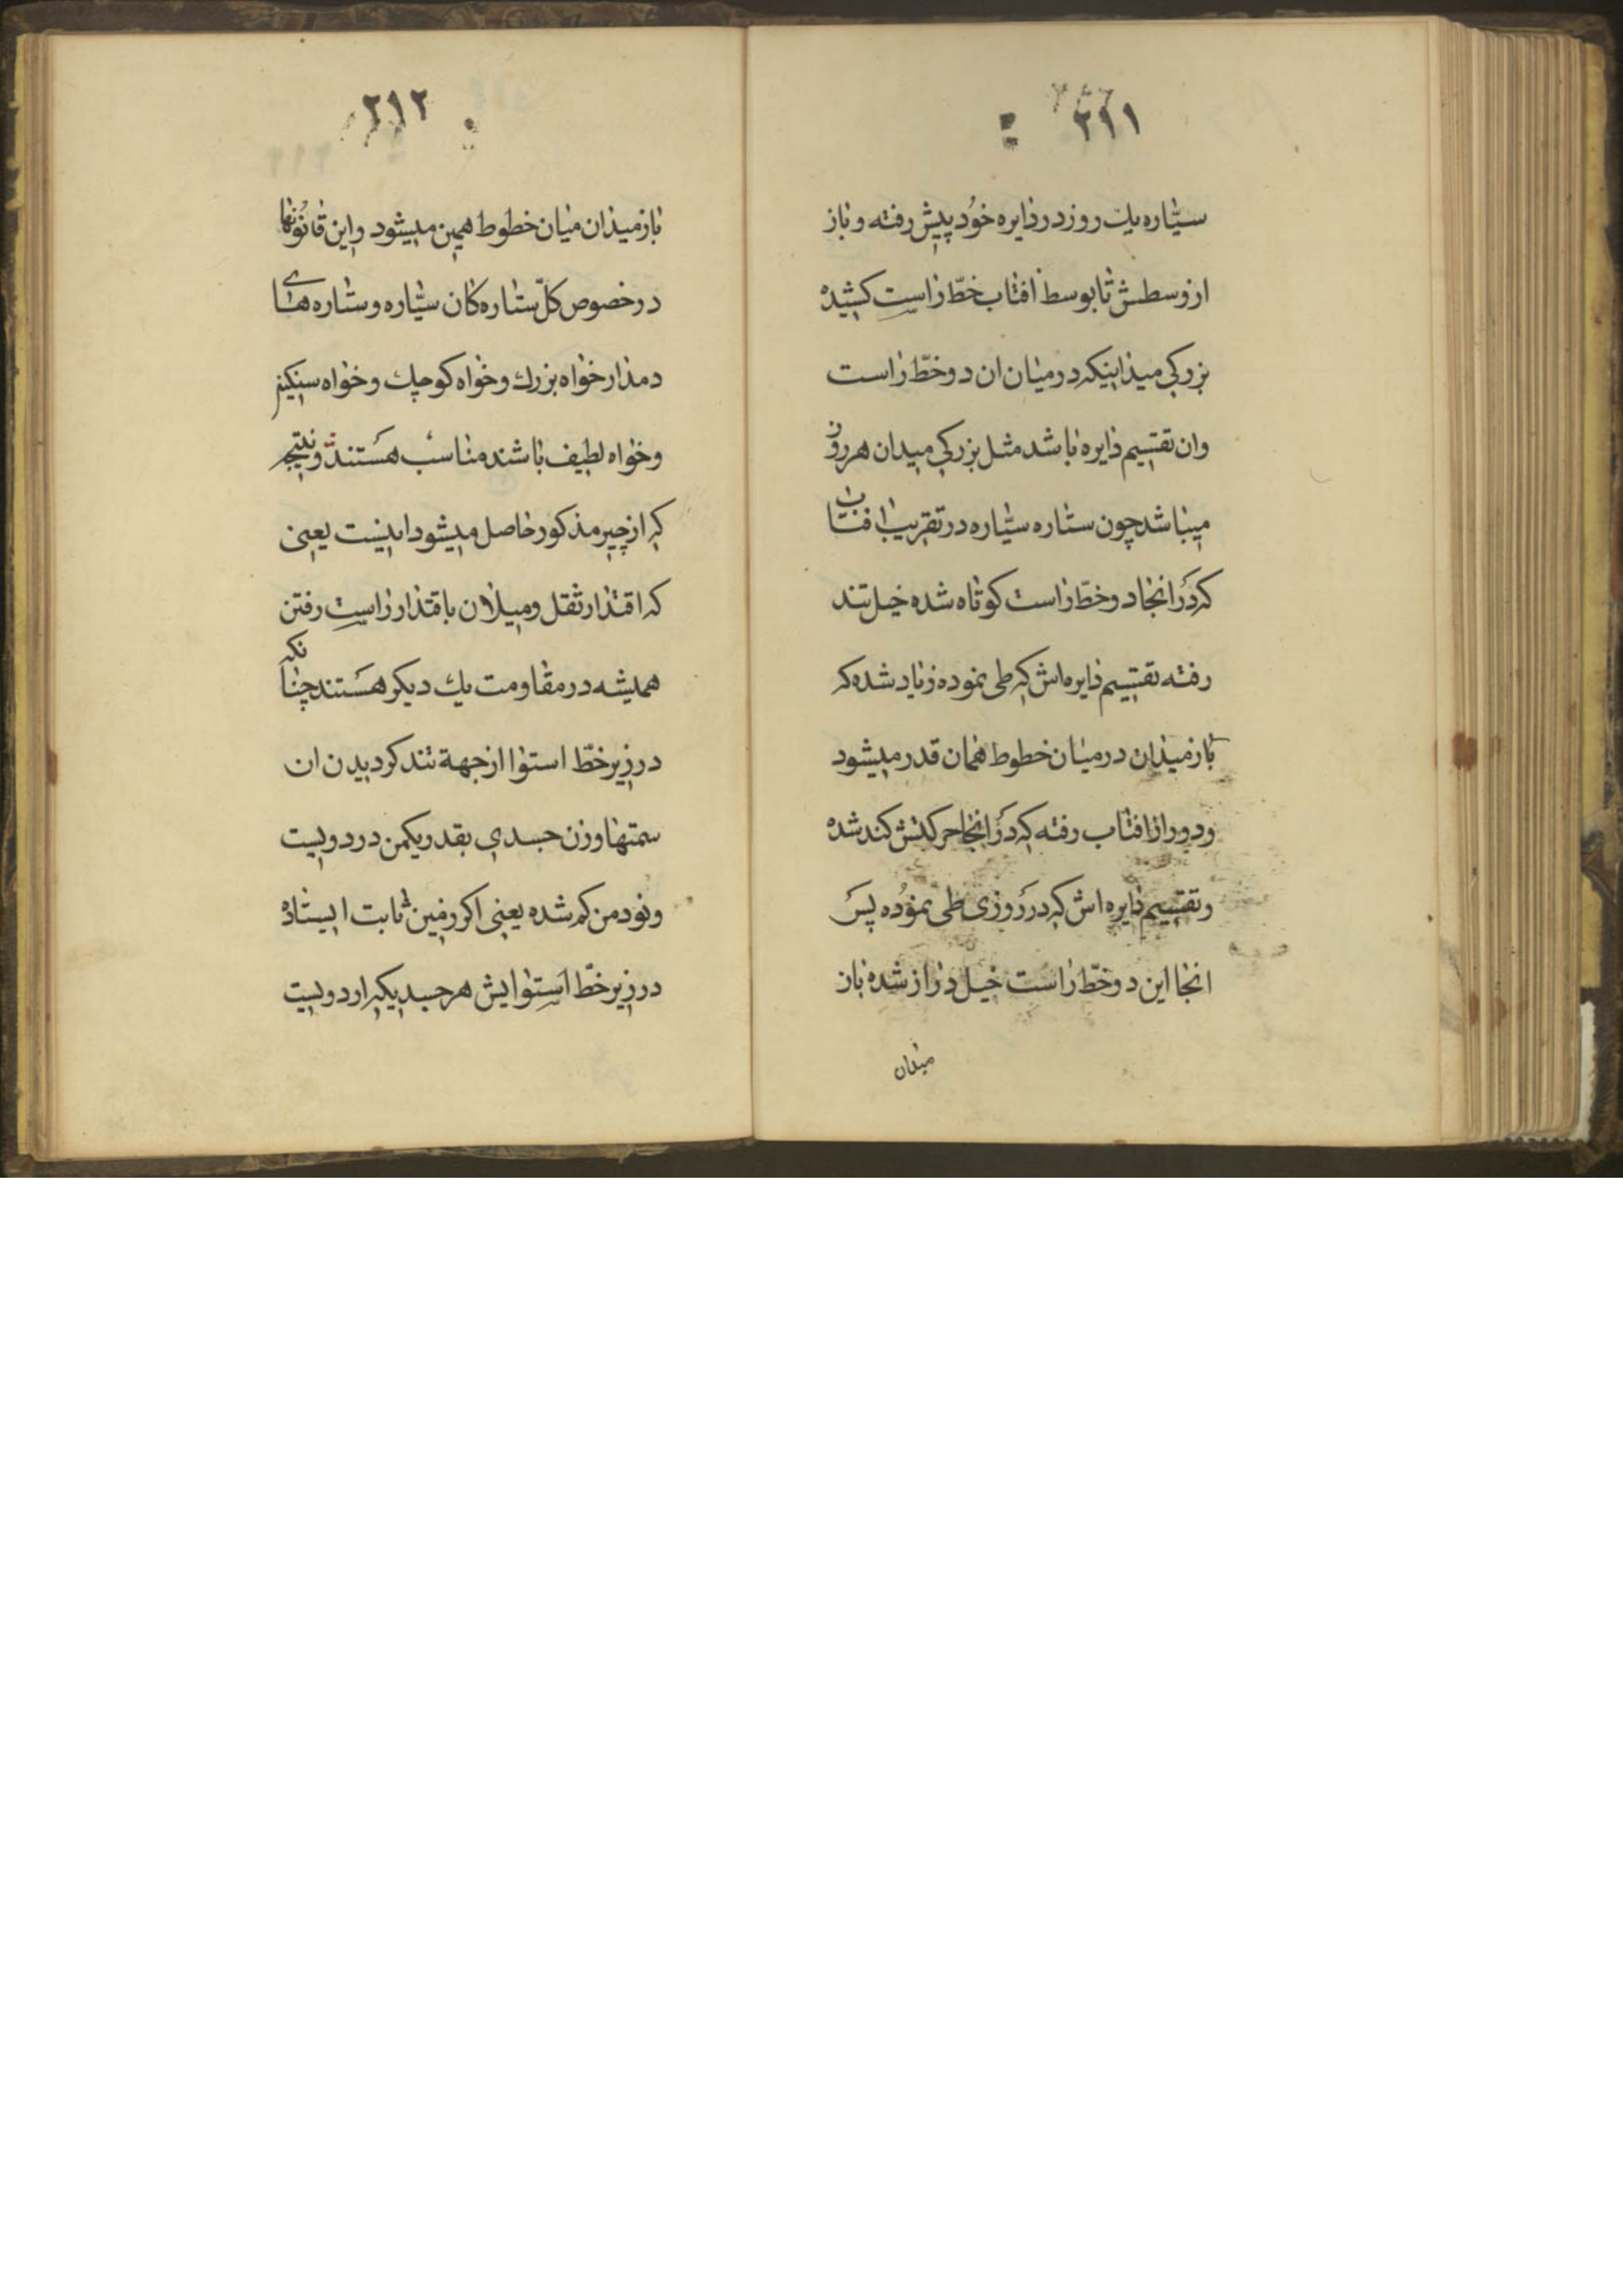 ۲۱۱
سیّاره یك روز در دایره خُود پیش رفته و باز
از وسطش تا بوسط افتاب خطّ راست کشیده
بزرکی میدانیکه در میان ان دو خطّ راست
وان تقسیم دایره باشد مثل بزرکی میدان هر روز
میباشد چون ستاره سیّاره در تقریب افتاب
که دَر انجا دو خطّ راست کوتاه شده خیل تند
رفته تقسیم دایره‌اش که طی نموده زیاد شده که
باز میدان در میان خطوط همان قدر میشود
و دور از افتاب رفته که دَر انجا حرکتش کند شده
و تقسیم دایره اش که در رَوزی طی نموُده پسَ
انجا این دو خطّ راست خیل دراز شده باز
میدان
۲۱۲
باز میدان میان خطوط همین میشود و این قانوُنها
در خصوص کلّ ستاره کان سیّاره و ستاره هاے
دمدار خواه بزرك و خواه کوچك و خواه سنکین
و خواه لطیف باشند مناسب هَستند و نتیجه
که از چیز مذکور حاصل میشود اینست یعنی
که اقتدار ثقل و میلان باقتدار راست رفتن
همیشه در مقاومت یك دیکر هَستند چنانکه
در زیر خطّ استوا از جهة تند کردیدن ان
سمتها وزن جسدی بقدر یکمن در دویست
و نود من کم شده یعنی اکر زمین ثابت ایستاده
در زیر خطّ استوایش هر جسد یکهزار دویست